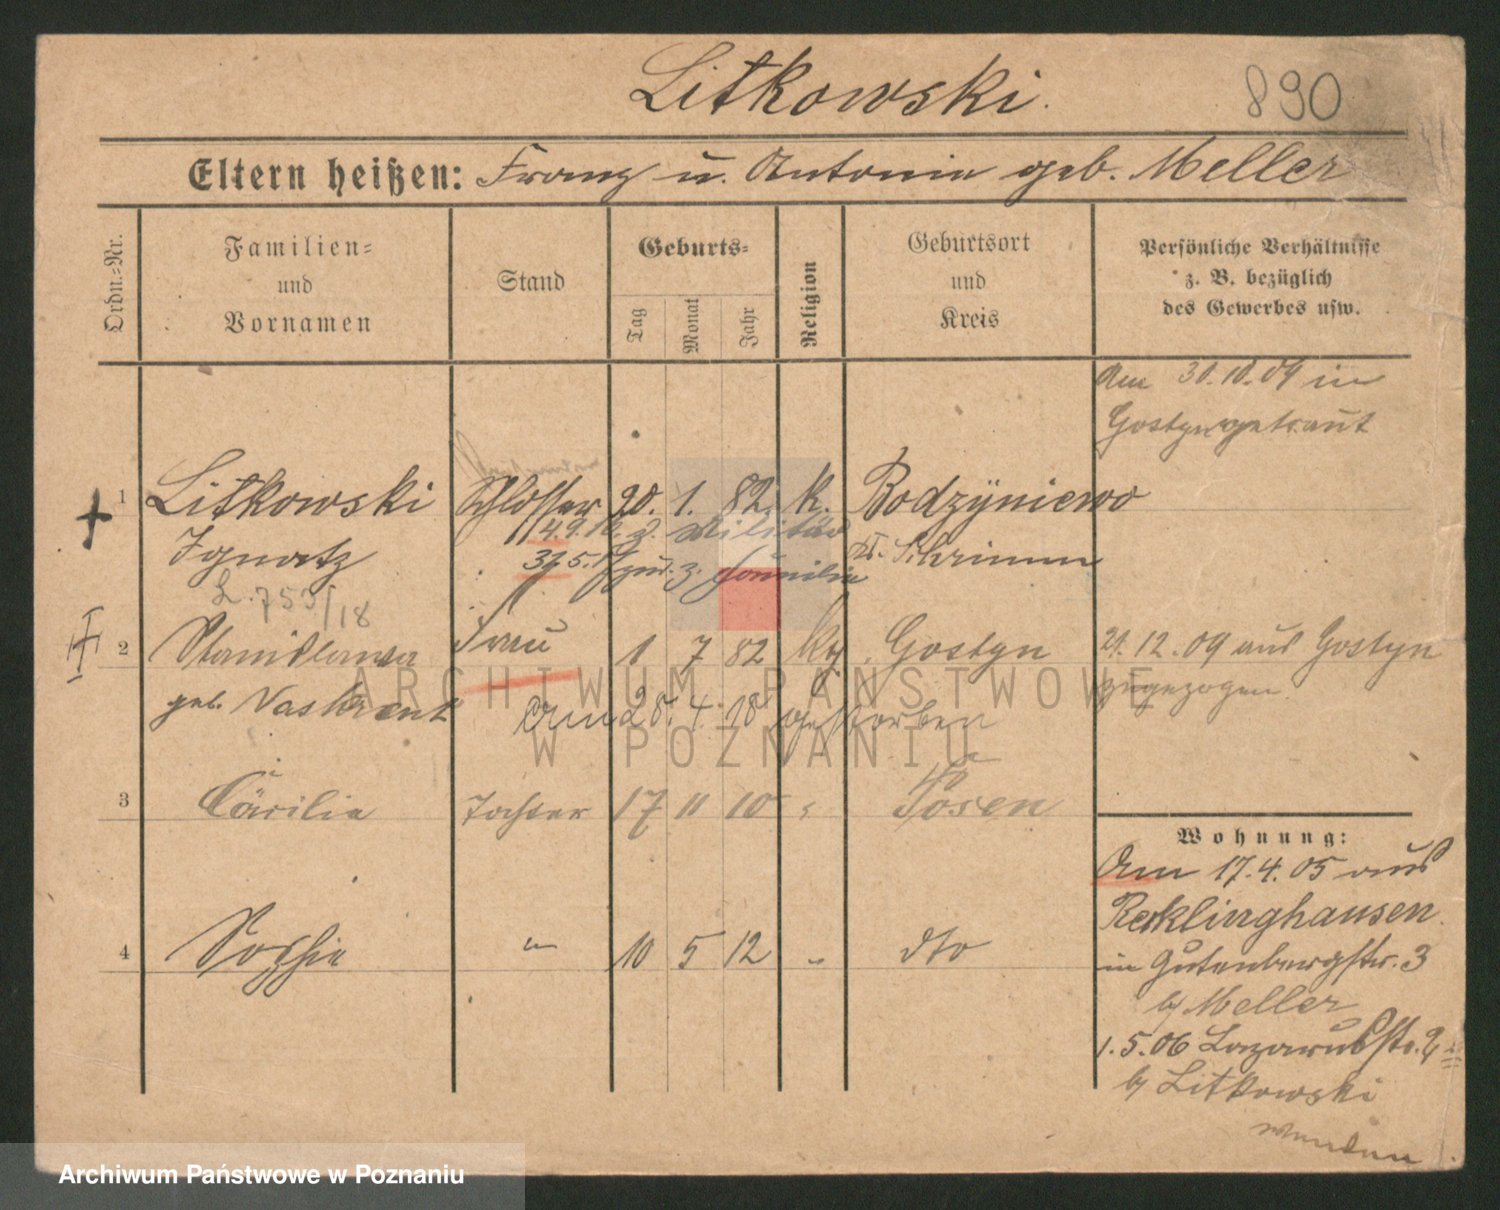 Litkowski.
890
Eltern heißen: Franz u. Antonie geb. Meller
Ordn.=Nr.
Familien=
und
Vornamen
Stand
Geburts=
Tag
Monat
Jahr
Religion
Geburtsort
und
Kreis
Persönliche Verhältnisse
z. B. bezüglich
des Gewerbes usw.
Am 30.10.09 in
Gostyn getraut
1 Litkowski Schlosser 20. 1. 82. k. Bodzyniewo
4.9.16. z. Militär
Ignatz
31.5. z. Familie Kr. Schrimm
L. 753/18
2 Stanislawa Frau 1 7 82 kg. Gostyn 21.12.09 aus Gostyn
zugezogen.
geb. Naskrent Am 28. 4. 18 gestorben
3 Cäcilie Tochter 17 11 10 " Posen
Wohnung:
Am 17.4.05 aus
Recklinghausen
4 Sophie " 10 5 12 " dto
in Gutenbergstr. 3
by Meller
1.5.06 Lazarusstr. 2
by Litkowski
wenden
ARCHIWUM PAŃSTWOWE
W POZNANIU
Archiwum Państwowe w Poznaniu